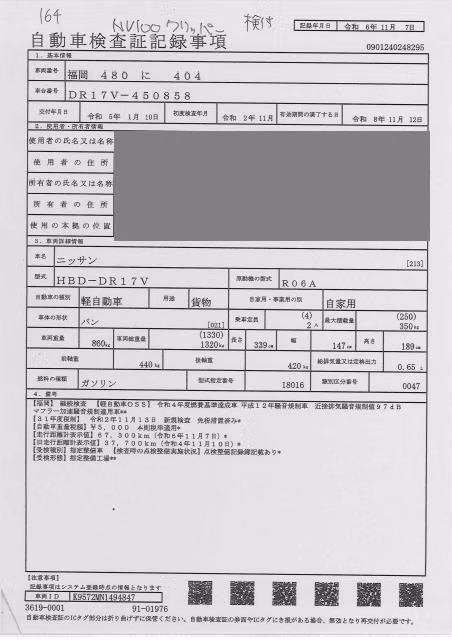 164 NV100クリッパー 検付
記録年月日 令和 6年11月 7日
自動車検査証記録事項
0901240248295
1. 基本情報
車両番号 福岡 480 に 404
車台番号 DR17V-450858
交付年月日 令和 5年 1月 10日 初度検査年月 令和 2年11月 有効期間の満了する日 令和 8年11月 12日
2. 使用者・所有者情報
使用者の氏名又は名称
使用者の住所
所有者の氏名又は名称
所有者の住所
使用の本拠の位置
3. 車両詳細情報
車名 ニッサン [213]
型式 HBD-DR17V 原動機の型式 R06A
自動車の種別 軽自動車 用途 貨物 自家用・事業用の別 自家用
車体の形状 バン [021] 乗車定員 (4) 2人 最大積載量 (250) 350kg
車両重量 860kg 車両総重量 (1330) 1320kg 長さ 339cm 幅 147cm 高さ 189cm
前軸重 440kg 後軸重 420kg 総排気量又は定格出力 0.65L
燃料の種類 ガソリン 型式指定番号 18016 類別区分番号 0047
4. 備考
【福岡】 継続検査 【軽自動車OSS】 令和4年度燃費基準達成車 平成12年騒音規制車 近接排気騒音規制値97dB
マフラー加速騒音規制適用車**
【31年度税制】 令和2年11月13日 新規検査 免税措置済み*
【自動車重量税額】¥5,000 本則税率適用*
【走行距離計表示値】67,300km(令和6年11月7日)*
【旧走行距離計表示値】37,700km(令和4年11月10日)*
【受検種別】指定整備車 【検査時の点検整備実施状況】点検整備記録簿記載あり*
【受検形態】指定整備工場**
【注意事項】
記録事項はシステム登録時点の情報となります
車両ID K9572MN1494847
3619-0001 91-01976
自動車検査証のICタグ部分は折り曲げずに保管ください。自動車検査証の券面やICタグにき損がある場合、無効となり再交付が必要です。